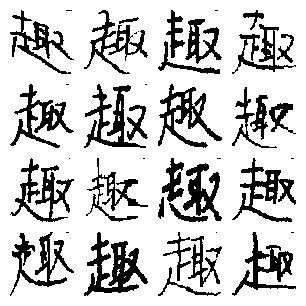 趣趣趣趣
趣趣趣趣
趣趣趣趣
趣趣趣趣